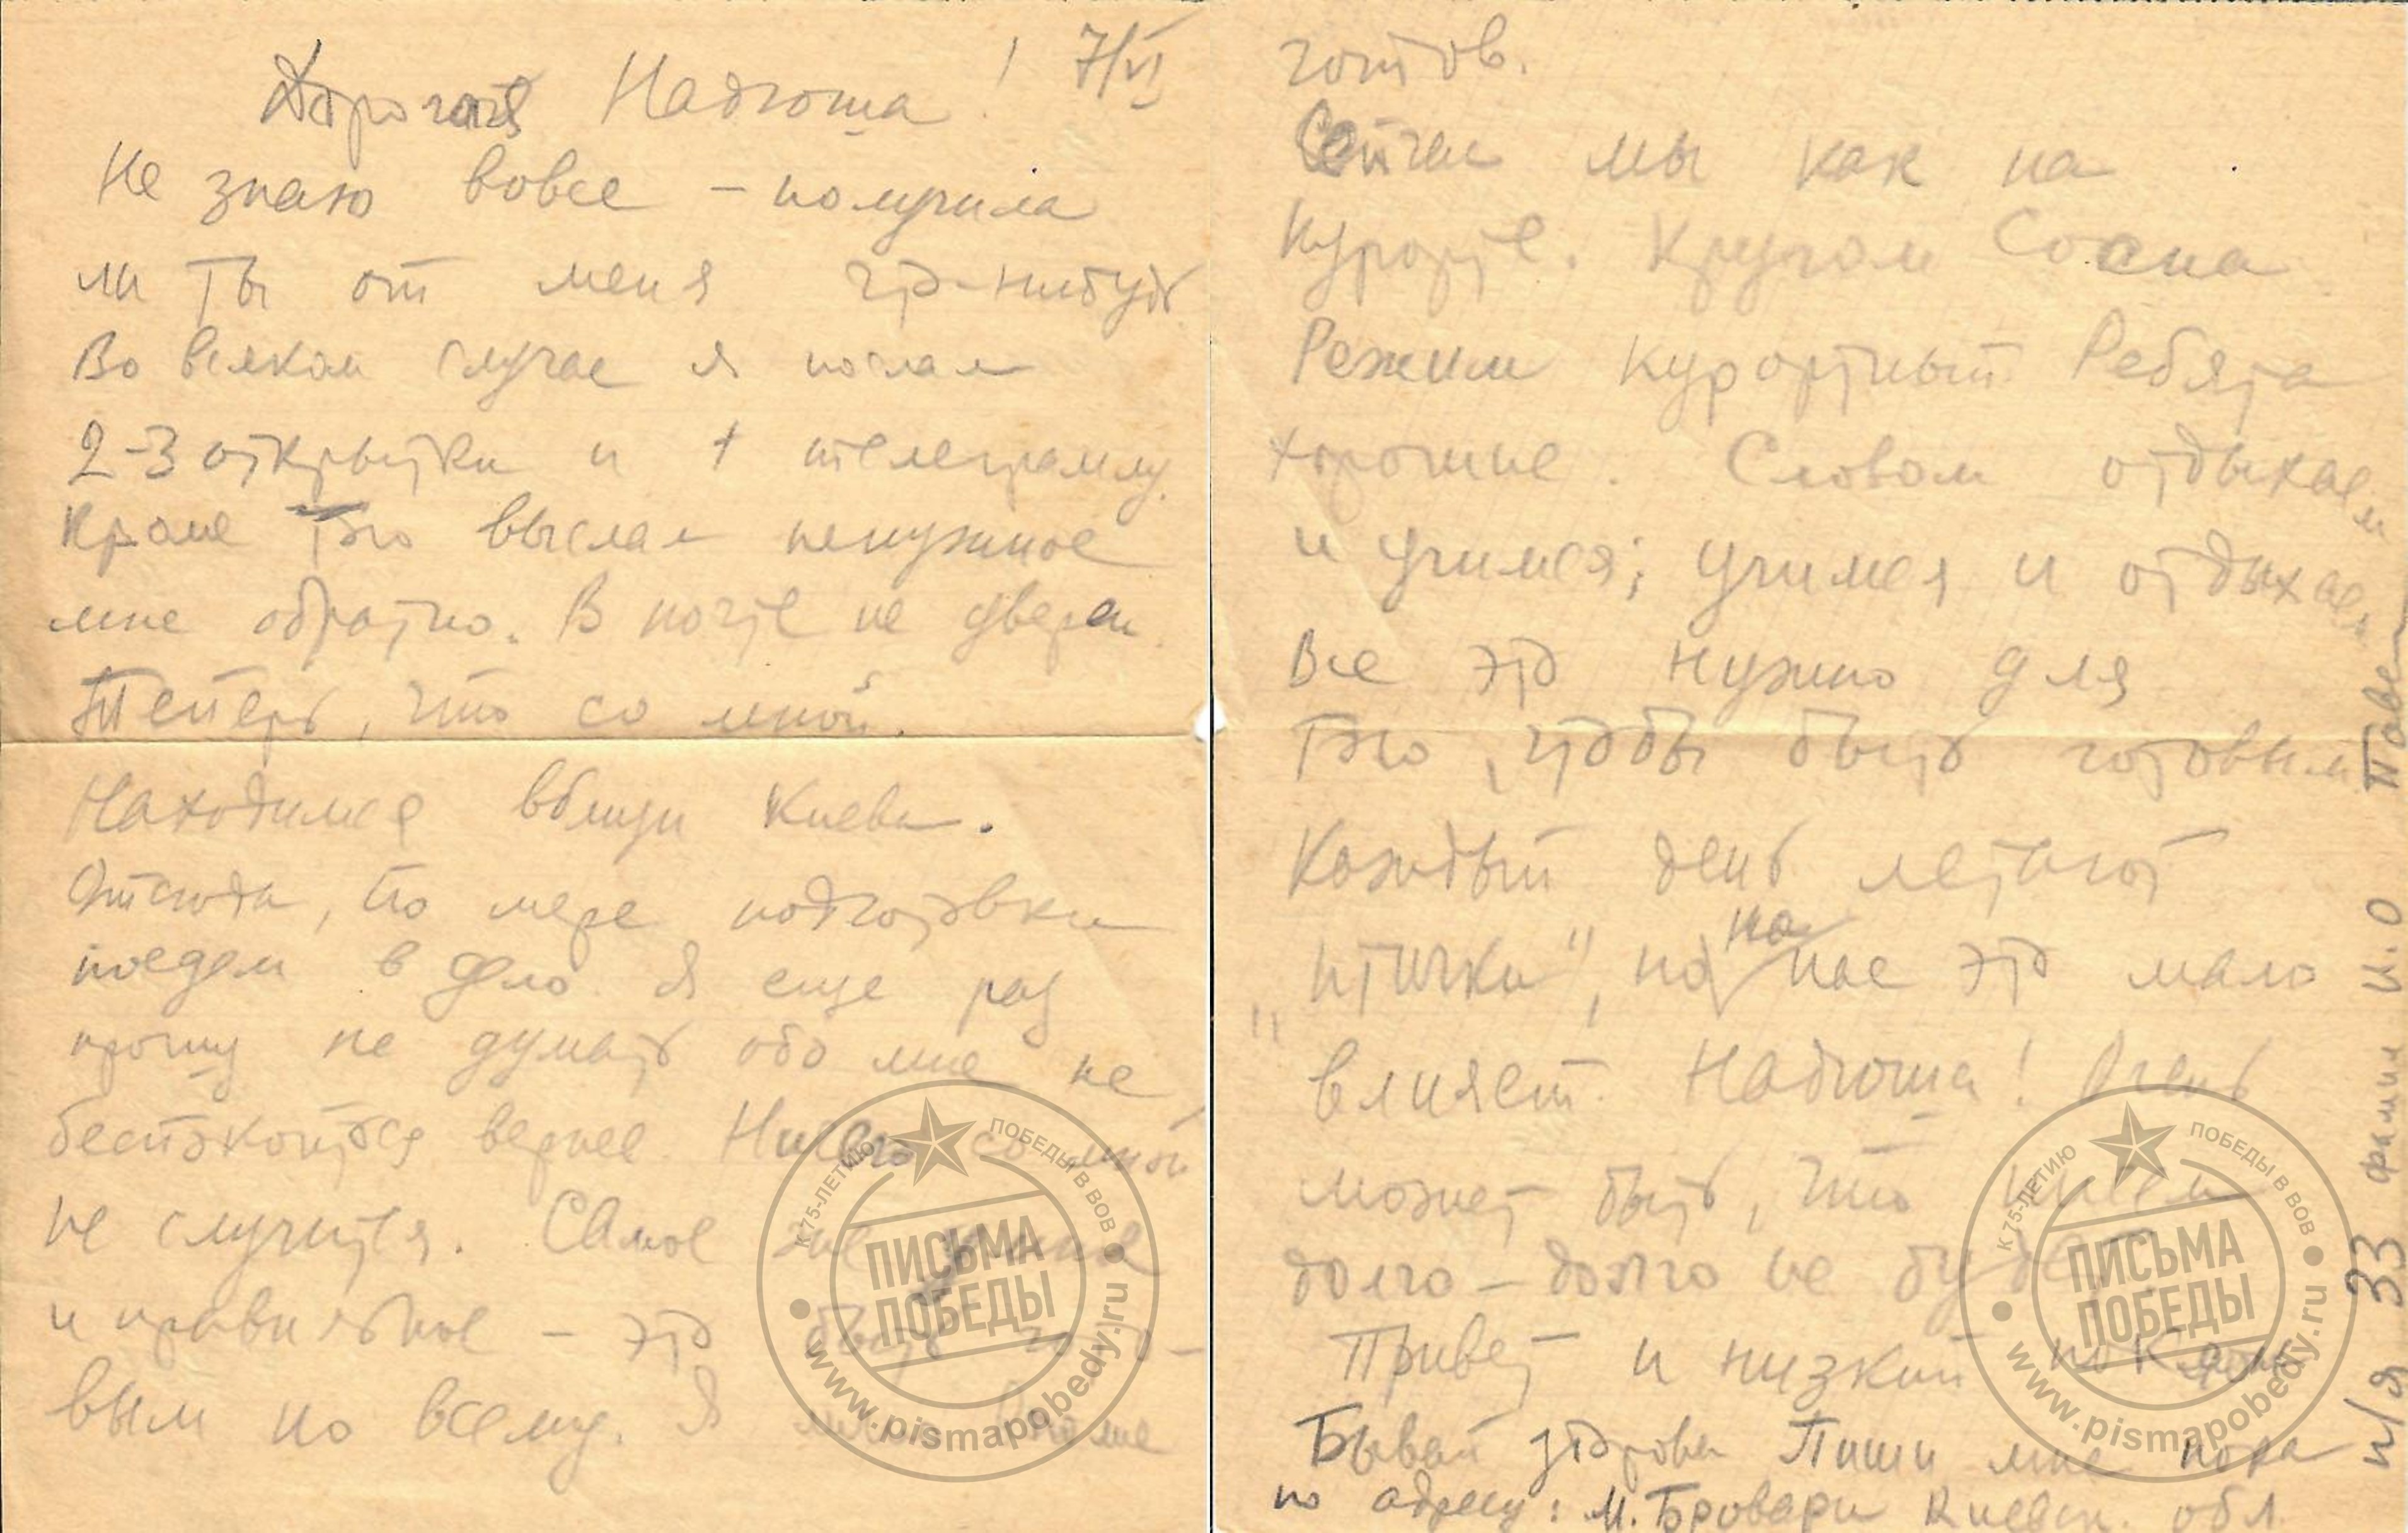 Дорогая Надюша! 7/VI
Не знаю вовсе – получила
ли ты от меня что-нибудь
Во всяком случае я послал
2-3 открытки и 1 телеграмму.
Кроме того выслал ненужное
мне обратно. В почте не уверен.
Теперь, что со мной.
Находимся вблизи Киева.
Отсюда, по мере подготовки
поедем в дело. Я еще раз
прошу не думать обо мне, не
беспокоиться вернее. Ничего со мной
не случится. Самое же
и правильное – это быть гото-
вым ко всему. Я вполне
готов.
Сейчас мы как на
курорте. Кругом сосна
Режим курортный. Ребята
хорошие. Словом отдыхаем
и учимся; учимся и отдыхаем
Все это нужно для
того, чтобы быть готовым
Каждый день летают
"птички", но на нас это мало
влияет. Надюша! Очень
может быть, что писем
долго – долго не будет
Привет и низкий поклон
Бывай здорова Пиши мне пока
по адресу: м. Бровари Киевск. обл.
п/я 33 фамил и.о Павел
К 75-ЛЕТИЮ ПОБЕДЫ В ВОВ
ПИСЬМА
ПОБЕДЫ
www.pismapobedy.ru
К 75-ЛЕТИЮ ПОБЕДЫ В ВОВ
ПИСЬМА
ПОБЕДЫ
www.pismapobedy.ru